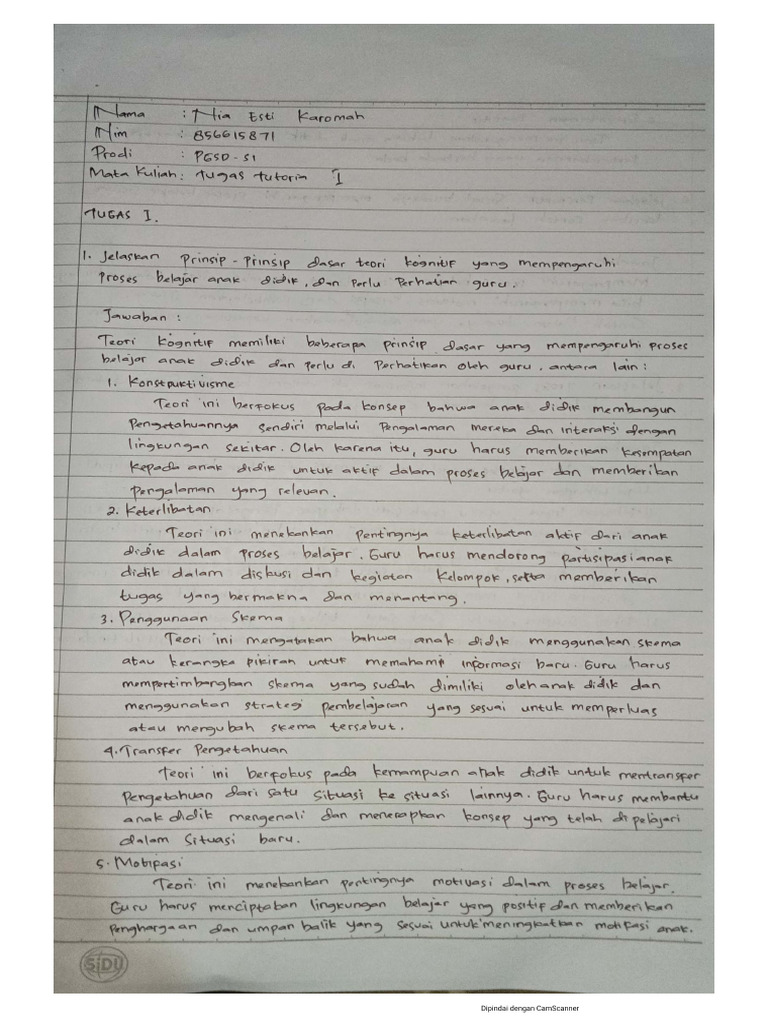 Nama : Nia Esti Karomah
Nim : 856615871
Prodi : PGSD-S1
Mata Kuliah : Tugas Tutorin I
TUGAS I.
1. Jelaskan Prinsip-Prinsip dasar teori kognitif yang mempengaruhi
Proses belajar anak didik, dan Perlu Perhatian guru.
Jawaban :
Teori Kognitif memiliki beberapa prinsip dasar yang mempengaruhi Proses
belajar anak didik dan Perlu di Perhatikan oleh guru. antara lain :
1. Konstruktivisme
Teori ini berfokus pada konsep bahwa anak didik membangun
Pengetahuannya sendiri melalui Pengalaman mereka dan interaksi dengan
lingkungan sekitar. Oleh karena itu, guru harus memberikan kesempatan
kepada anak didik untuk aktif dalam proses belajar dan memberikan
pengalaman yang relevan.
2. Keterlibatan
Teori ini menekankan Pentingnya keterlibatan aktif dari anak
didik dalam Proses belajar. Guru harus mendorong partisipasi anak
didik dalam diskusi dan kegiatan kelompok, serta memberikan
tugas yang bermakna dan menantang.
3. Penggunaan Skema
Teori ini mengatakan bahwa anak didik menggunakan skema
atau kerangka pikiran untuk memahami informasi baru. Guru harus
mempertimbangkan skema yang sudah dimiliki oleh anak didik dan
menggunakan strategi pembelajaran yang sesuai untuk memperluas
atau mengubah skema tersebut.
4. Transfer Pengetahuan
Teori ini berfokus pada kemampuan anak didik untuk mentransfer
Pengetahuan dari satu situasi ke situasi lainnya. Guru harus membantu
anak didik mengenali dan menerapkan konsep yang telah di pelajari
dalam situasi baru.
5. Motifasi
Teori ini menekankan pentingnya motivasi dalam proses belajar.
Guru harus menciptakan lingkungan belajar yang positif dan memberikan
Penghargaan dan umpan balik yang sesuai untuk meningkatkan motifasi anak.
SiDU
Dipindai dengan CamScanner